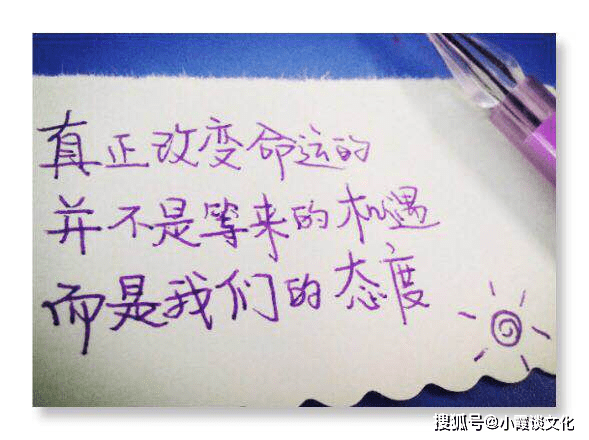 真正改变命运的
并不是等来的机遇
而是我们的态度
搜狐号@小霞谈文化